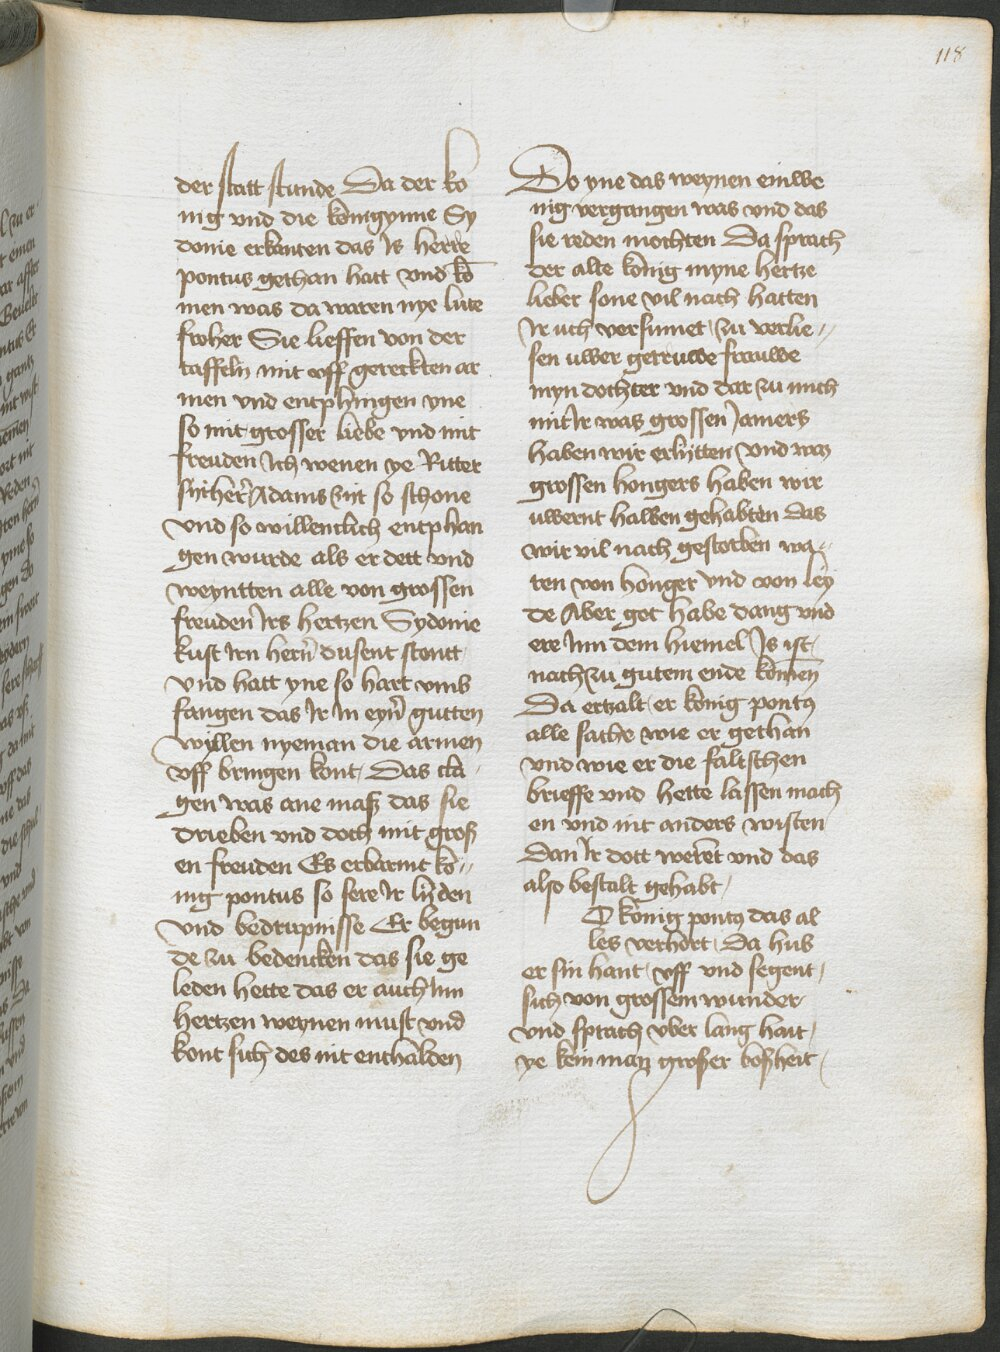 118
der statt stunde Da der ko
nig vnd die konigynne Sy
donie erkanten das Is herre
pontus gethan hatt vnd ko
men was da waren nye lute
froher Sie lieffen von der
taffeln mit vff gereckten ar
men vnd entphingen yne
so mit grosser liebe vnd mit
freuden Ich wenen ye Ritter
syther Adams zijt so schone
vnd so willentlich entphan
gen wurde als er dett vnd
weyntten alle von grossen
freuden Irs hertzen Sydonie
kust Irn hern̄ dusent stontt
vnd hatt yne so hart vmb
fangen das Ir In eyn̄ gutten
wyllen nyeman die armen
vff bringen kont Das cla
gen was ane masz das sie
drieben vnd doch mit grosz
en freuden Es erbarmt ko//
nig pontus so sere Ir lyden
vnd bedrupnisse Er begun
de zu bedencken das sie ge
leden hette das er auch Im
hertzen weynen must vnd
kont sich des nit enthalden
Do yne das weynen ein we
nig vergangen was vnd das
sie reden mochten Da sprach
der alte konig myne hertze
lieber sone vil nach hatten
Ir uch versumet zu verlie//
sen uwer getruwe frauwe
myn dochter vnd dar zu mich
mit Ir was grossen Jamers
haben wir erlytten vnd was
grossen hongers haben wir
uwernt halben gehabten das
wir vil nach gestorben wa//
ren von honger vnd von ley
de Aber got habe dang vnd
ere Inn dem hiemel Is ist
nach zu gutem ende komen
Da erzalt er konig pontus
alle sache wie er gethan
vnd wie er die falschen
brieffe vnd hette lassen mach
en vnd nit anders wisten
Dan Ir dott weret vnd das
also bestalt gehabt
O konig pontus das al
les verhort Da hub
er sin hant vff vnd segent
sich von grossem wunder
vnd sprach vber lang hait
ye kein man groszer boszheit